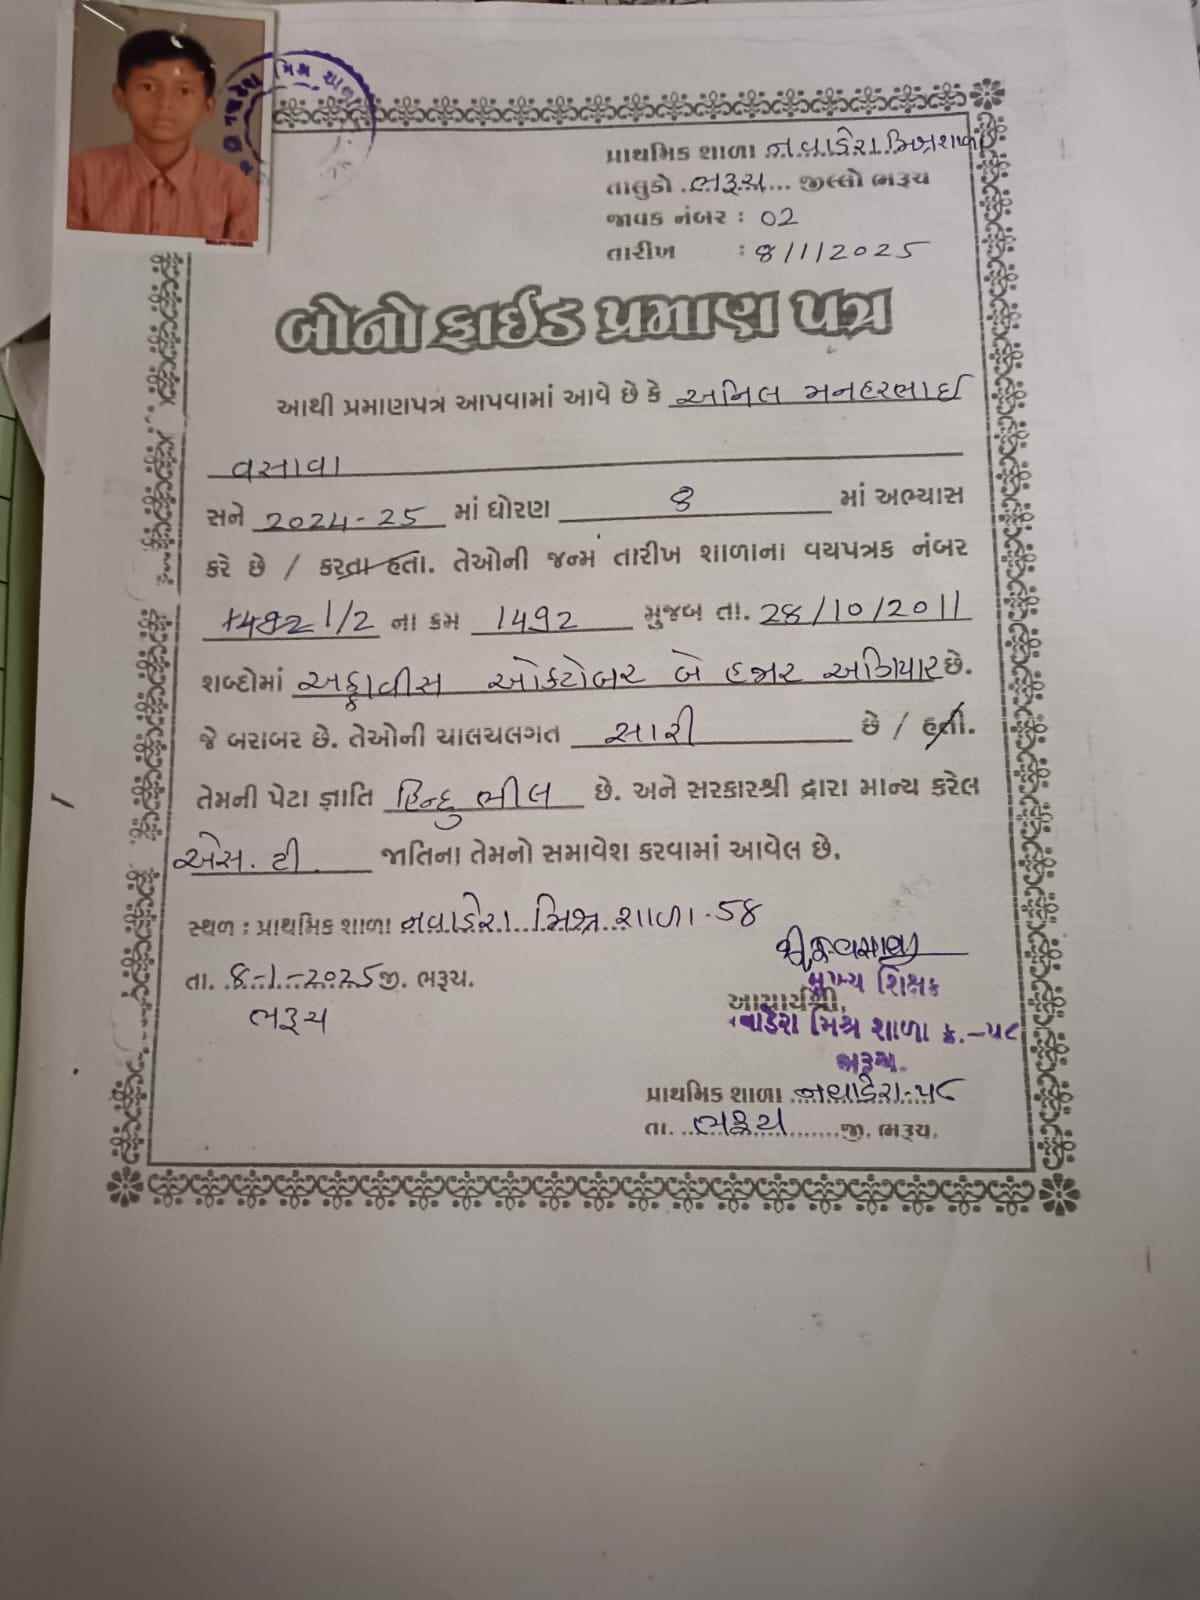 મિશ્ર શાળ
પ્રાથમિક શાળા નવાડેરા મિશ્રશાળા
તાલુકો ભરૂચ જીલ્લો ભરૂચ
જાવક નંબર : 02
તારીખ : 8/1/2025
બોનોફાઈડ પ્રમાણ પત્ર
આથી પ્રમાણપત્ર આપવામાં આવે છે કે અનિલ મનહરભાઈ
વસાવા
સને 2024-25 માં ધોરણ 8 માં અભ્યાસ
કરે છે / કરતા હતા. તેઓની જન્મ તારીખ શાળાના વયપત્રક નંબર
1492 1/2 ના ક્રમ 1492 મુજબ તા. 28/10/2011
શબ્દોમાં અઠ્ઠાવીસ ઓક્ટોબર બે હજાર અગિયાર છે.
જે બરાબર છે. તેઓની ચાલચલગત સારી છે / હતી.
તેમની પેટા જ્ઞાતિ હિન્દુ ભીલ છે. અને સરકારશ્રી દ્વારા માન્ય કરેલ
એસ. ટી. જાતિના તેમનો સમાવેશ કરવામાં આવેલ છે.
સ્થળ : પ્રાથમિક શાળા નવાડેરા મિશ્ર શાળા-58
તા. 8-1-2025 જી. ભરૂચ.
ભરૂચ
મુખ્ય શિક્ષક
આચાર્યશ્રી,
નવાડેરા મિશ્ર શાળા ક્ર.-૫૮
ભરૂચ.
પ્રાથમિક શાળા નવાડેરા-૫૮
તા. ભરૂચ જી. ભરૂચ.